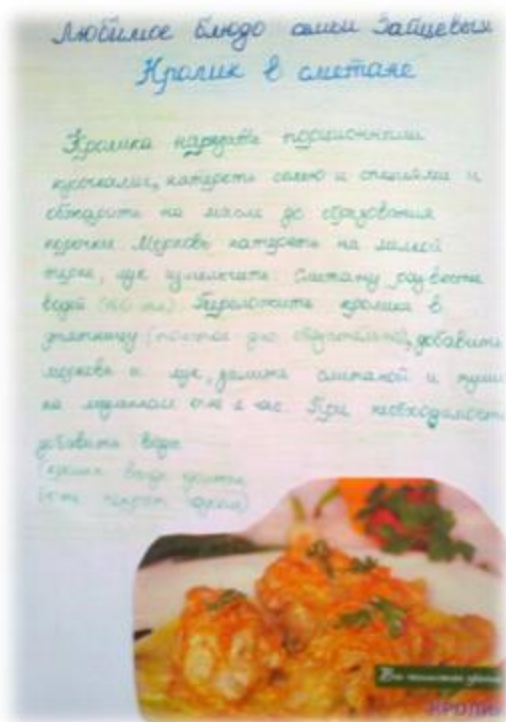 Любимое блюдо семьи Зайцевых
Кролик в сметане
Кролика нарезать порционными
кусочками, натереть солью и специями и
обжарить на масле до образования
корочки. Морковь натереть на мелкой
терке, лук измельчить. Сметану развести
водой Переложить кролика в
утятницу (толстое дно обязательно), добавить
морковь и лук, залить сметаной и тушить
на медленном огне 1 час. При необходимости
добавить воды
КРОЛИК